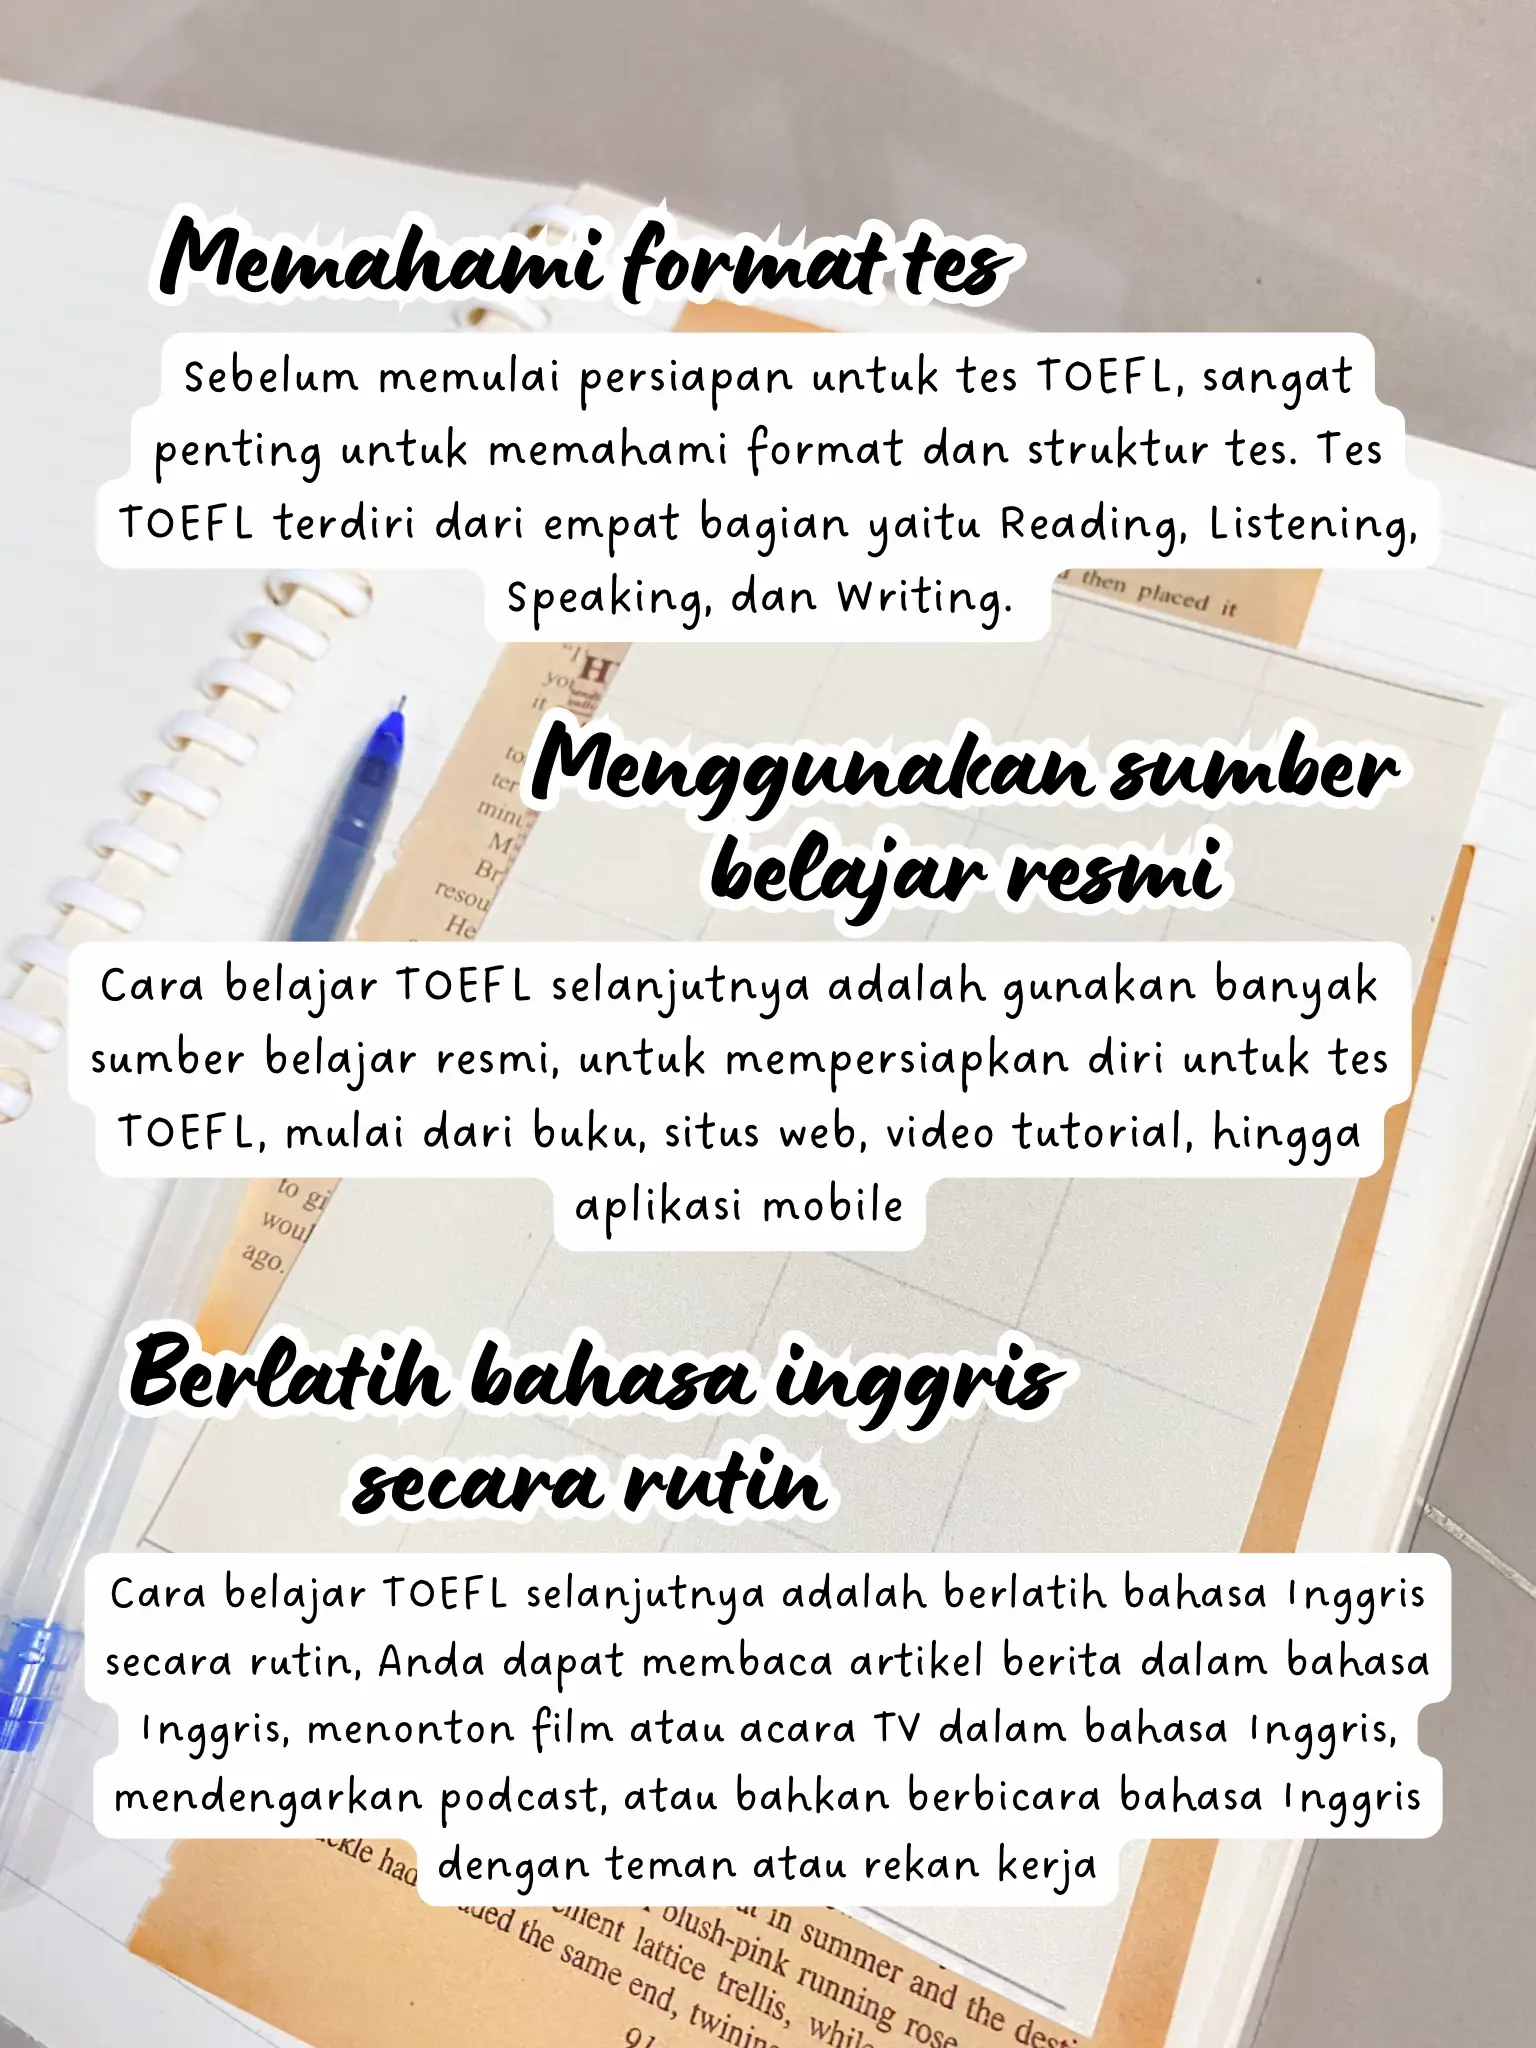 Memahami format tes
Sebelum memulai persiapan untuk tes TOEFL, sangat
penting untuk memahami format dan struktur tes. Tes
TOEFL terdiri dari empat bagian yaitu Reading, Listening,
Speaking, dan Writing.
then placed it
"I
H
you
it
to
ter
Menggunakan sumber
belajar resmi
M
Br
resou
He
Cara belajar TOEFL selanjutnya adalah gunakan banyak
sumber belajar resmi, untuk mempersiapkan diri untuk tes
TOEFL, mulai dari buku, situs web, video tutorial, hingga
aplikasi mobile
to gi
woul
ago.
Berlatih bahasa inggris
secara rutin
Cara belajar TOEFL selanjutnya adalah berlatih bahasa Inggris
secara rutin, Anda dapat membaca artikel berita dalam bahasa
Inggris, menonton film atau acara TV dalam bahasa Inggris,
mendengarkan podcast, atau bahkan berbicara bahasa Inggris
dengan teman atau rekan kerja
ckle had
in summer and the
blush-pink running rose
lattice trellis, while
the same end, twining
91